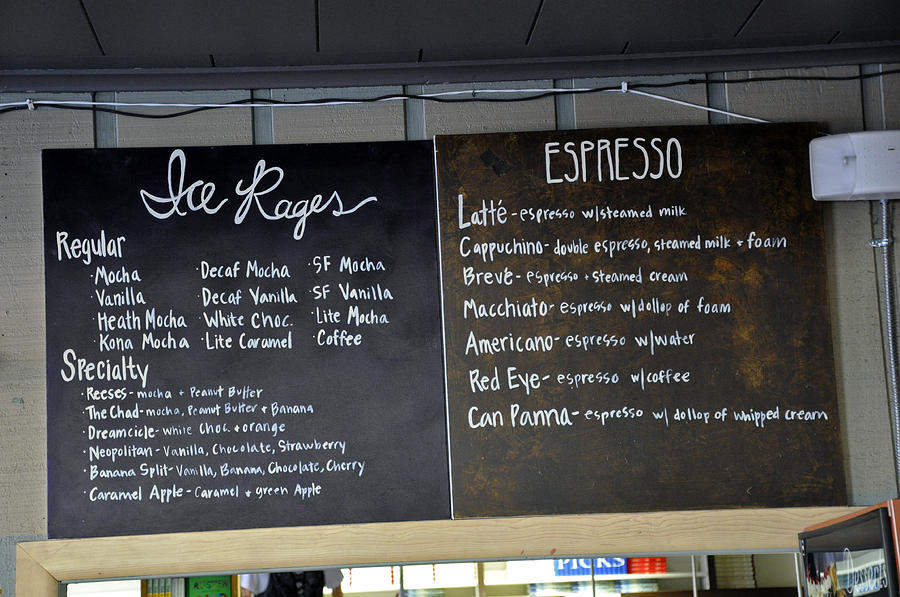 Ice Rages
Regular
·Mocha
·Vanilla
·Heath Mocha
·Kona Mocha
·Decaf Mocha
·Decaf Vanilla
·White Choc.
·Lite Caramel
·SF Mocha
·SF Vanilla
·Lite Mocha
·Coffee
Specialty
·Reeses- mocha + Peanut Butter
·The Chad- mocha, Peanut Butter + Banana
·Dreamcicle- white choc. + orange
·Neopolitan- Vanilla, Chocolate, Strawberry
·Banana Split- Vanilla, Banana, Chocolate, Cherry
·Caramel Apple- Caramel + green Apple
ESPRESSO
Latté- espresso w/steamed milk
Cappuchino- double espresso, steamed milk + foam
Brevé- espresso + steamed cream
Macchiato- espresso w/dollop of foam
Americano- espresso w/water
Red Eye- espresso w/coffee
Can Panna- espresso w/ dollop of whipped cream
PICKS